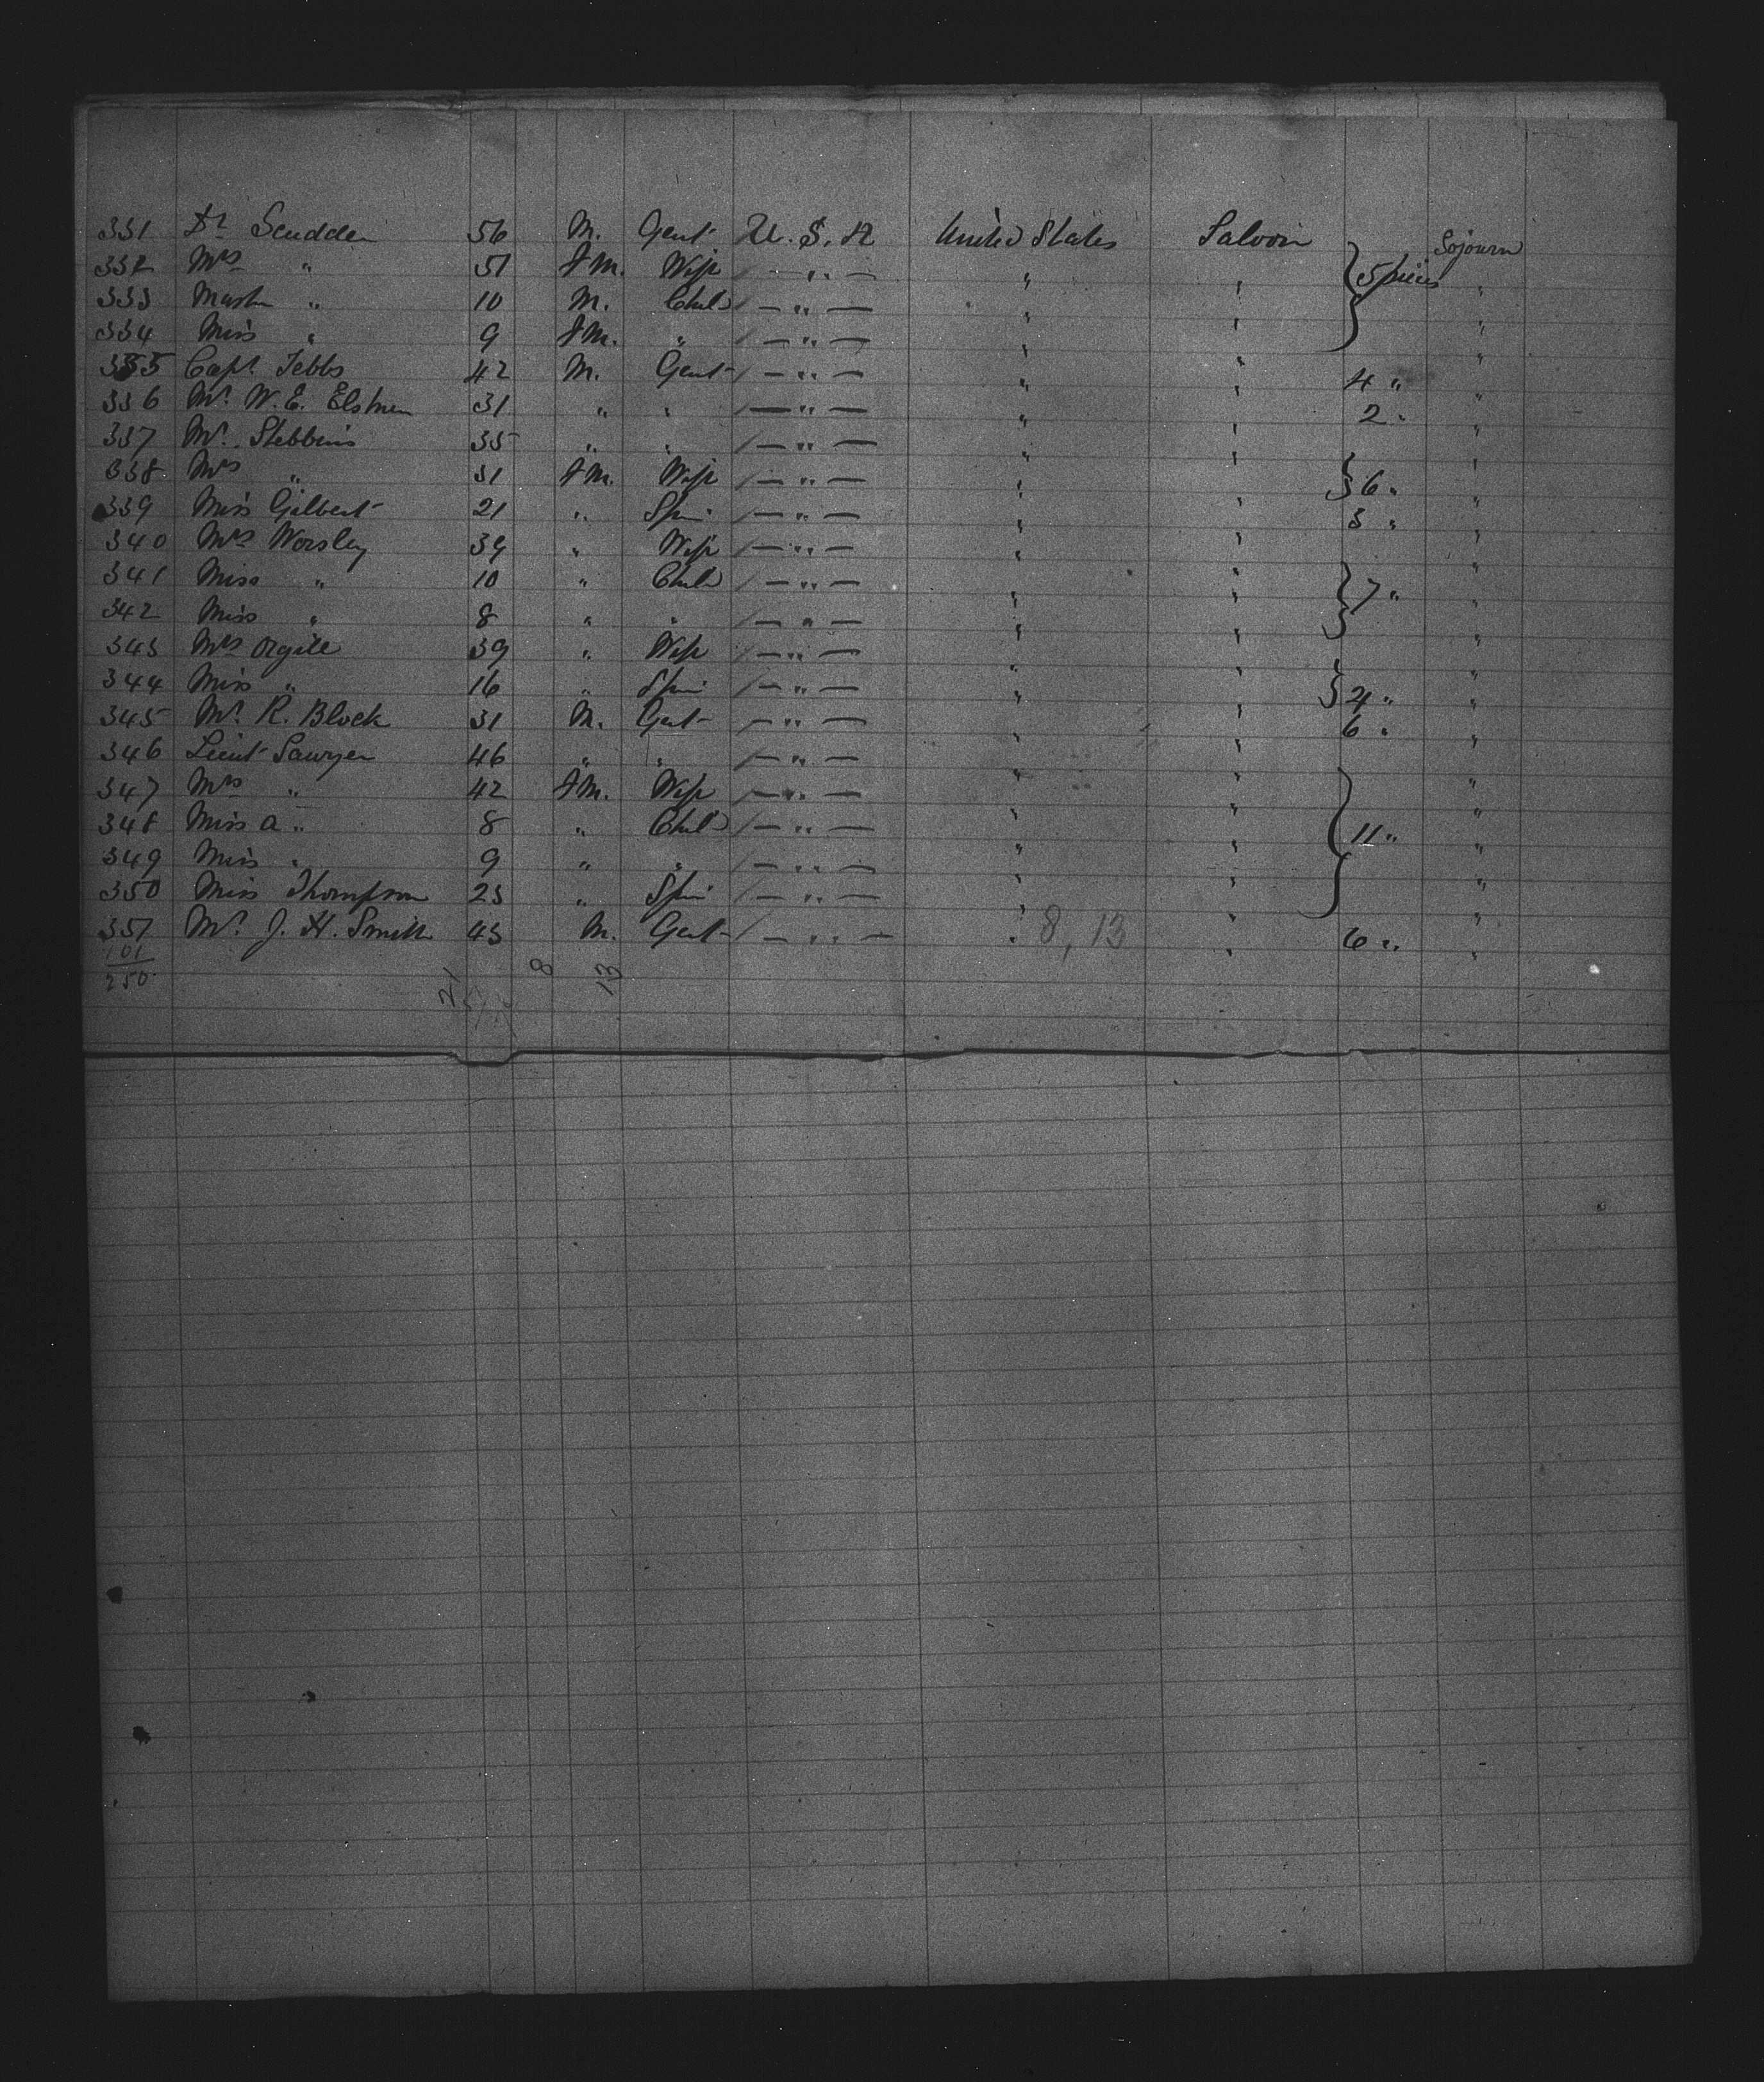 331 Dr Scudder 56 M. Gent U. S. A United States Saloon 5 pieces Sojourn
332 Mrs " 51 FM. Wife / — " — " " "
333 Master " 10 M. Child / — " — " " "
334 Miss " 9 FM. " / — " — " " "
335 Capt. Tebbs 42 M. Gent / — " — " " 4 " "
336 Mr. W. E. 31 " " / — " — " " 2 " "
337 Mr. Stebbins 35 " " / — " — " " "
338 Mrs " 31 FM. Wife / — " — " " 6 " "
339 Miss Gilbert 21 " Spin / — " — " " 3 " "
340 Mrs Worsley 39 " Wife / — " — " " "
341 Miss " 10 " Child / — " — " " 7 " "
342 Miss " 8 " " / — " — " " "
343 Mrs Orgill 39 " Wife / — " — " " "
344 Miss " 16 " Spin / — " — " " 4 " "
345 Mr. R. Block 31 M. Gent / — " — " " 6 " "
346 Lieut Sawyer 46 " " / — " — " " "
347 Mrs " 42 FM. Wife / — " — " " "
348 Miss A " 8 " Child / — " — " " 11 " "
349 Miss " 9 " " / — " — " " "
350 Miss Thompson 23 " Spin / — " — " " "
351 Mr. J. H. Smith 43 M. Gent / — " — " 8, 13 " 6 " "
101
250 21 8 13